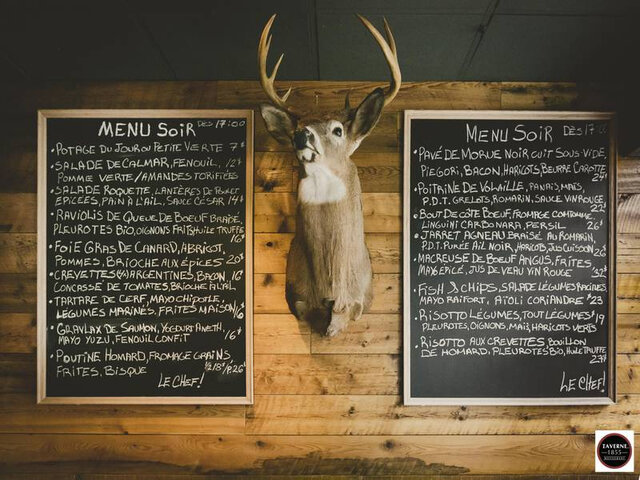 MENU SOIR DÈS 17:00
• POTAGE DU JOUR OU PETITE VERTE 7$
• SALADE DE CALMAR, FENOUIL, 12$
POMME VERTE/AMANDES TORIFIÉES
• SALADE ROQUETTE, LANIÈRES DE POULET
ÉPICÉES, PAIN À L'AIL, SAUCE CÉSAR 14$
• RAVIOLIS DE QUEUE DE BOEUF BRAISÉ,
PLEUROTES BIO, OIGNONS FRITS & HUILE TRUFFE
16$
• FOIE GRAS DE CANARD, ABRICOT,
POMMES, BRIOCHE AUX ÉPICES 20$
• CREVETTES (4) ARGENTINES, BACON, 16$
CONCASSÉ DE TOMATES, BRIOCHE À L'AIL
• TARTARE DE CERF, MAYO CHIPOTLE,
LÉGUMES MARINÉS, FRITES MAISON 16$
• GRAVLAX DE SAUMON, YOGOURT ANETH,
MAYO YUZU, FENOUIL CONFIT 16$
• POUTINE HOMARD, FROMAGE GRAINS,
FRITES, BISQUE 1/2 18/P 26$
LE CHEF!
MENU SOIR DÈS 17:00
• PAVÉ DE MORUE NOIR CUIT SOUS-VIDE,
PIEGORI, BACON, HARICOTS, BEURRE CAROTTE
24$
• POITRINE DE VOLAILLE, PANAIS, MAÏS,
P.D.T. GRELOTS, ROMARIN, SAUCE VIN ROUGE
22$
• BOUT DE CÔTE BOEUF, FROMAGE COMTOMME,
LINGUINI CARBONARA, PERSIL 26$
• JARRET AGNEAU BRAISÉ AU ROMARIN,
P.D.T. PURÉE AIL NOIR, HARICOTS, JUS CUISSON
26$
• MACREUSE DE BOEUF ANGUS, FRITES
MAX ÉPICÉ, JUS DE VEAU VIN ROUGE 32$
• FISH & CHIPS, SALADE LÉGUMES RACINES,
MAYO RAIFORT, AÏOLI CORIANDRE 23$
• RISOTTO LÉGUMES, TOUT LÉGUMES! 19$
PLEUROTES, OIGNONS, MAÏS, HARICOTS VERTS
• RISOTTO AUX CREVETTES, BOUILLON
DE HOMARD, PLEUROTES BIO, HUILE TRUFFE
23$
LE CHEF!
TAVERNE
1855
RESTAURANT